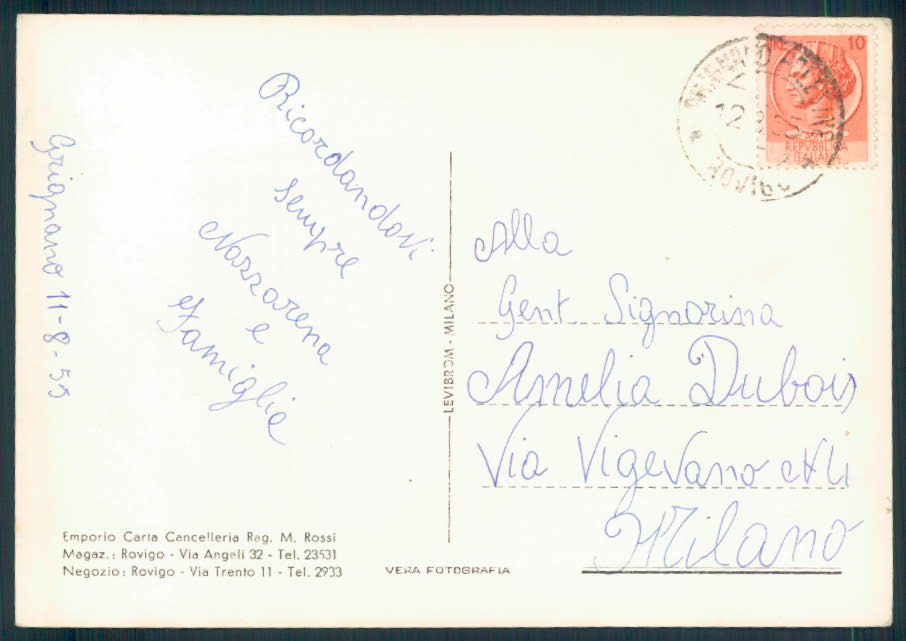 Grignano 11-8-55
Ricordandovi
sempre
Nazzarena
e
Famiglia
Emporio Carta Cancelleria Rag. M. Rossi
Magaz.: Rovigo - Via Angeli 32 - Tel. 23531
Negozio: Rovigo - Via Trento 11 - Tel. 2933
VERA FOTOGRAFIA
LEVIBROM - MILANO
10
REPVBBLICA
ITALIANA
ROVIGO
Alla
Gent. Signorina
Amelia Dubois
Via Vigevano
Milano